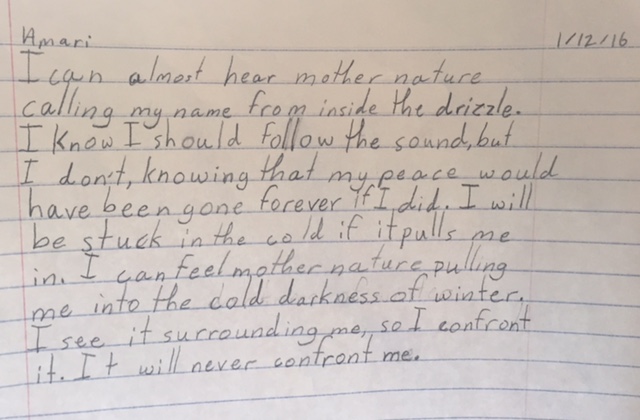 Amari 1/12/16
I can almost hear mother nature
calling my name from inside the drizzle.
I know I should follow the sound, but
I don't, knowing that my peace would
have been gone forever if I did. I will
be stuck in the cold if it pulls me
in. I can feel mother nature pulling
me into the cold darkness of winter.
I see it surrounding me, so I confront
it. It will never confront me.